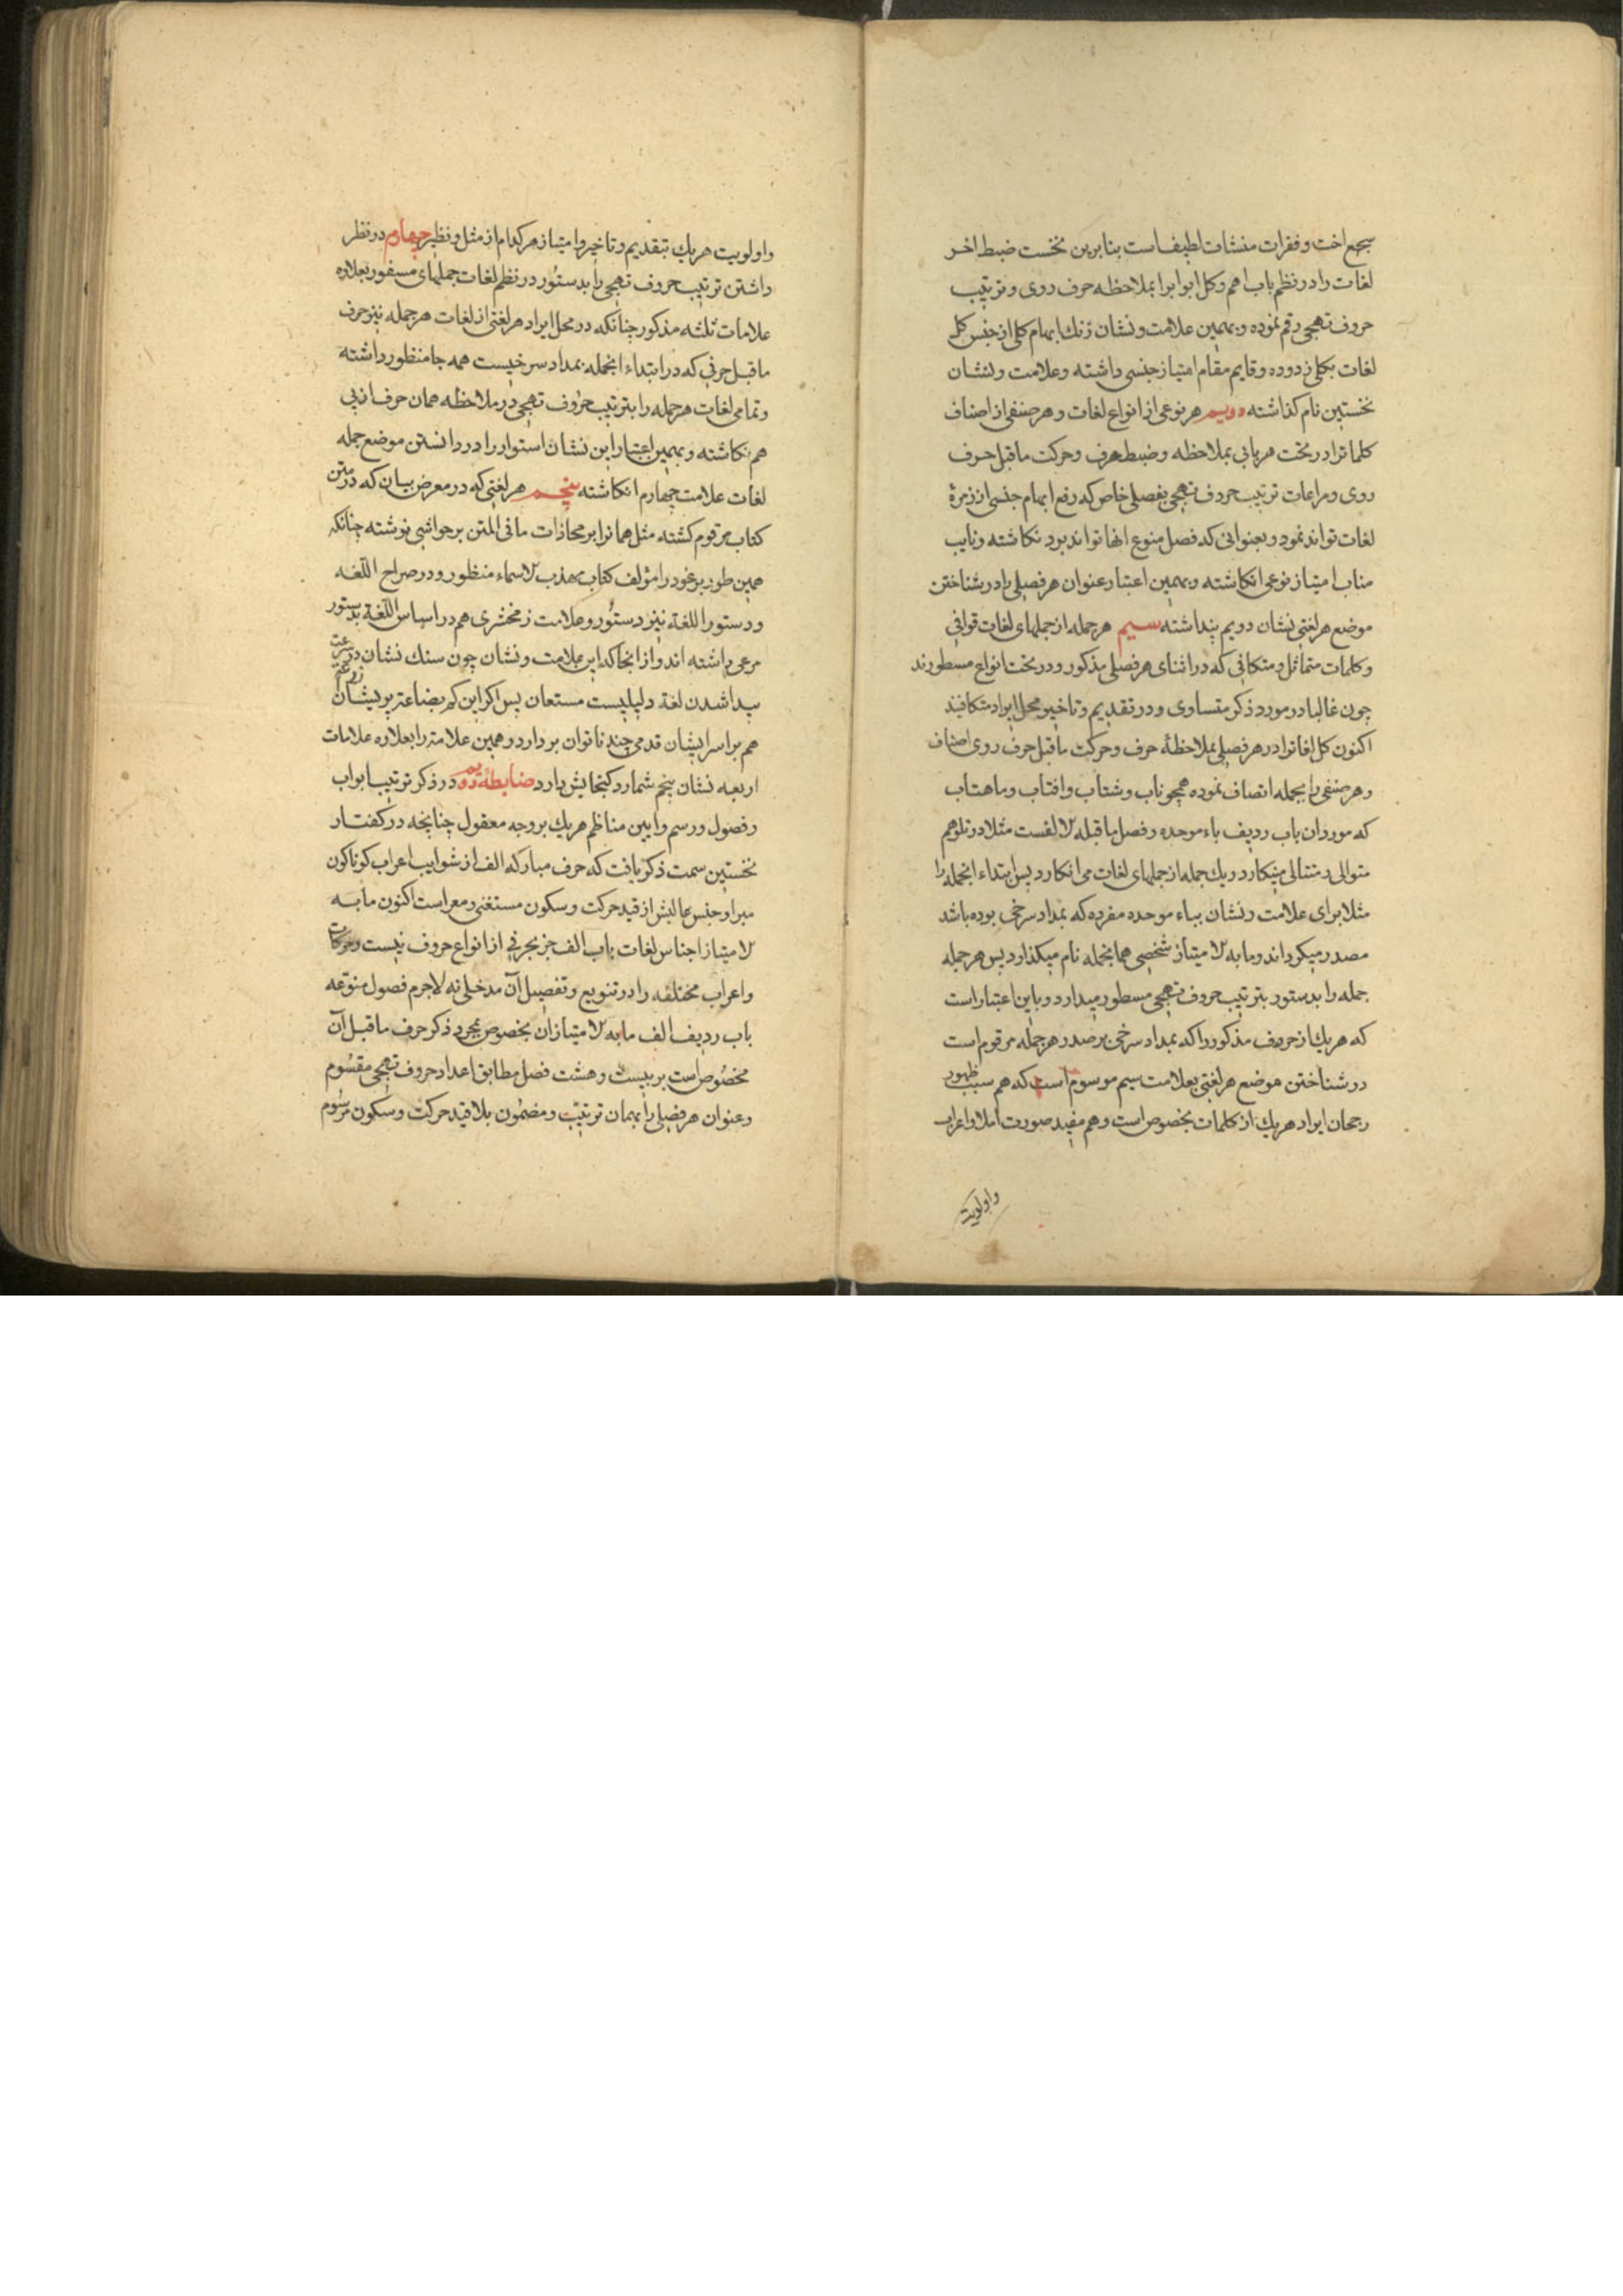 سجع اخت و فقرات منشات لطیف است بنابرین نخست ضبط اخر
لغات را در نظم باب اهم و کل ابوابرا بملاحظه حرف روی و ترتیب
حروف تهجی رقم نموده و بهمین علامت و نشان زنك ابهام کلی از جنس کل
لغات بکلی زدوده و قایم مقام امتیاز جنسی داشته و علامت و نشان
نخستین نام کذاشته دویم هر نوعی از انواع لغات و هر صنفی از اصناف
کلماترا در تحت هر بابی بملاحظه و ضبط حرف و حرکت ماقبل حرف
روی و مراعات ترتیب حروف تهجی بفصلی خاص که رفع ابهام جنسی از زمرهٔ
لغات تواند نمود و بعنوانی که فصل منوع انها تواند بود نکاشته و نایب
مناب امتیاز نوعی انکاشته و بهمین اعتبار عنوان هر فصلی را در شناختن
موضع هر لغتی نشان دویم پنداشته سیم هر جمله از جملهای لغات قوافی
و کلمات متماثل و متکافی که در اثنای هر فصلی مذکور و در تحت انواع مسطورند
چون غالبا در مورد ذکر متساوی و در تقدیم و تاخیر محل ایراد متکافیند
اکنون کل لغاترا در هر فصلی بملاحظهٔ حرف و حرکت ماقبل حرف روی اصناف
و هر صنفی را بجمله اتصاف نموده همچو ناب و شتاب و افتاب و ماهتاب
که مورد ان باب ردیف باء موحده و فصل ماقبله الالفست مثلا در تلو هم
متوالی و متتالی مینکارد و یك جمله از جملهای لغات می انکارد پس ابتداء انجمله را
مثلا برای علامت و نشان بباء موحده مفرده که بمداد سرخی بوده باشد
مصدر میکرداند و مابه الامتیاز شخصی همانجمله نام میکذارد پس هر جمله
جمله را بدستور بترتیب حروف تهجی مسطور میدارد و باین اعتبار است
که هر یك از حروف مذکور را که بمداد سرخی بر صدر هر جمله مرقوم است
در شناختن موضع هر لغتی بعلامت سیم موسوم است که هم سبب ظهور
رجحان ایراد هر یك از کلمات بخصوص است و هم مفید صورت املا و اعراب
و اولویت
و اولویت هر یك بتقدیم و تاخیر و امتیاز هر کدام از مثل و نظیر چهارم در نظر
داشتن ترتیب حروف تهجی را بدستور در نظم لغات جملهای مسفور بعلاوه
علامات ثلثه مذکور چنانکه در محل ایراد هر لغتی از لغات هر جمله نیز حرف
ماقبل حرفی که در ابتداء انجمله بمداد سرخیست همه جا منظور داشته
و تمامی لغات هر جمله را بترتیب حروف تهجی در ملاحظه همان حرف ازپی
هم نکاشته و بهمین اعتبار این نشان استوار را در دانستن موضع جمله
لغات علامت چهارم انکاشته پنجم هر لغتی که در معرض بیان که در متن
کتاب مرقوم کشته مثل همانرا بر محاذات ما فی المتن بر حواشی نوشته چنانکه
همین طور بر غور را مؤلف کتاب مهذب الاسماء منظور و در صراح اللغه
و دستور اللغة نیز دستور و علامت زمخشری هم در اساس اللغة بدستور
مرعی داشته اند و از انجا که این علامت و نشان چون سنك نشان در سرعت
پیدا شدن لغة دلیلیست مستعان پس اکر این کم بضاعت پریشان
هم بر اسر ایشان قدمی چند ناتوان بردارد و همین علامت را بعلاوه علامات
اربعه نشان پنجم شمارد کنجایش دارد ضابطهٔ دویم در ذکر ترتیب ابواب
و فصول و رسم و ایین مناظم هر یك بر وجه معقول چنانچه در کفتار
نخستین سمت ذکر یافت که حرف مبارکه الف از شوایب اعراب کوناکون
مبرا و جنس عالیش از قید حرکت و سکون مستغنی و معراست اکنون مابه
الامتیاز اجناس لغات باب الف جز بحرفی از انواع حروف نیست و حرکات
و اعراب مختلفه را در تنویع و تفصیل آن مدخلی نه لاجرم فصول منوّعه
باب ردیف الف مابه الامتیاز ان بخصوص بمجرد ذکر حرف ماقبل آن
مخصوص است بر بیست و هشت فصل مطابق اعداد حروف تهجی مقسوم
و عنوان هر فصلی را بهمان ترتیب و مضمون بلا قید حرکت و سکون مرسوم